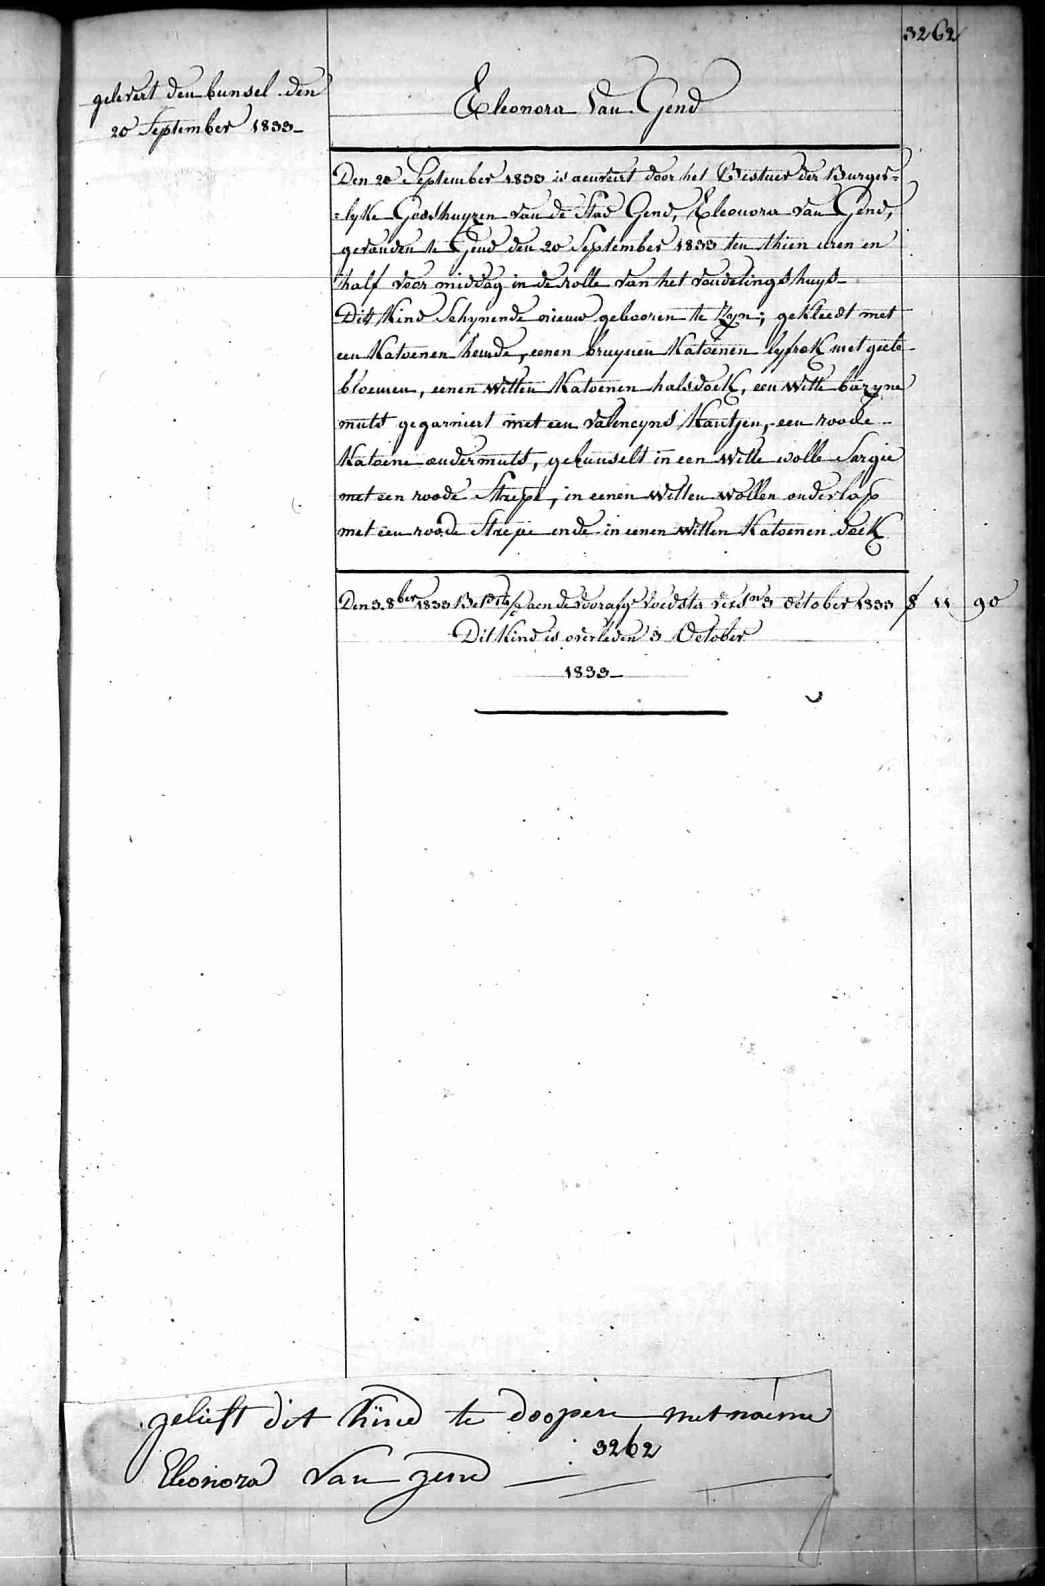 3262
gelevert den bunsel den
20 September 1833
Eleonora Van Gend
Den 20 September 1833 is aenveert door het Bestuer der Burger=
=lyke Godshuyzen van de Stad Gend, Eleonora van Gend,
gevonden te Gend den 20 September 1833 ten thien uren en
half voor middag in de rolle van het vondelingshuys
Dit Kind Schynende nieuw gebooren te Zyn; gekleedt met
een Katoenen hemde, eenen bruynen Katoenen lyfrok met geele
bloemen, eenen witten Katoenen halsdoek, een witte bazyne
muts gegarniert met een valencyns Kantjen, een roode
Katoene ondermuts, gebunselt in een witte wolle Sargie
met een roode Strepe, in eenen witten wollen onderlap
met een roode Strepe ende in eenen witten Katoenen doek
Den 3. 8ber 1833 aen de voorafge Voedster 3 October 1833 8 11 90
Dit Kind is overleden 3 October
1833
gelieft dit kind te doopen met naeme
3262
Eleonora Van gend